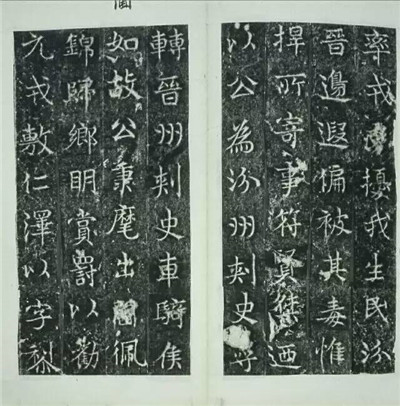 率戎擾我生民汾
晉邊遐偏被其毒惟
捍所寄事符賢傑迺
以公為汾州刺史尋
轉晉州刺史車騎侯
如故公秉麾出佩
錦歸鄉明賞罰以勸
元戎敷仁澤以字黎